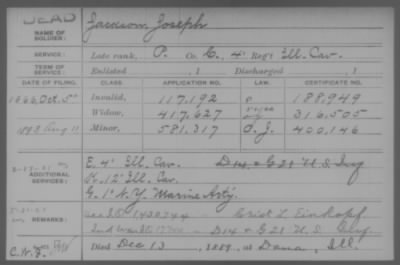 DEAD
Jackson, Joseph
NAME OF SOLDIER:
SERVICE: Late rank, P. Co. E, 4" Reg't Ill. Cav.
TERM OF SERVICE: Enlisted , 1 Discharged , 1
DATE OF FILING. CLASS. APPLICATION NO. LAW. CERTIFICATE NO.
1866 Oct. 5" Invalid, 117,192 188,949
Widow, 417,627 316,505
1893 Aug 11, Minor, 581,317 O.L. 400,146
ADDITIONAL SERVICES: E. 4" Ill. Cav. D 14 & G 21 U.S. Inf
K. 12" Ill. Cav.
G. 1" N.Y. Marine Arty.
REMARKS: 1430744
D 14 & G 21 U.S. Inf.
C.W.J. Died Dec 13, 1889, at Dana, Ill.